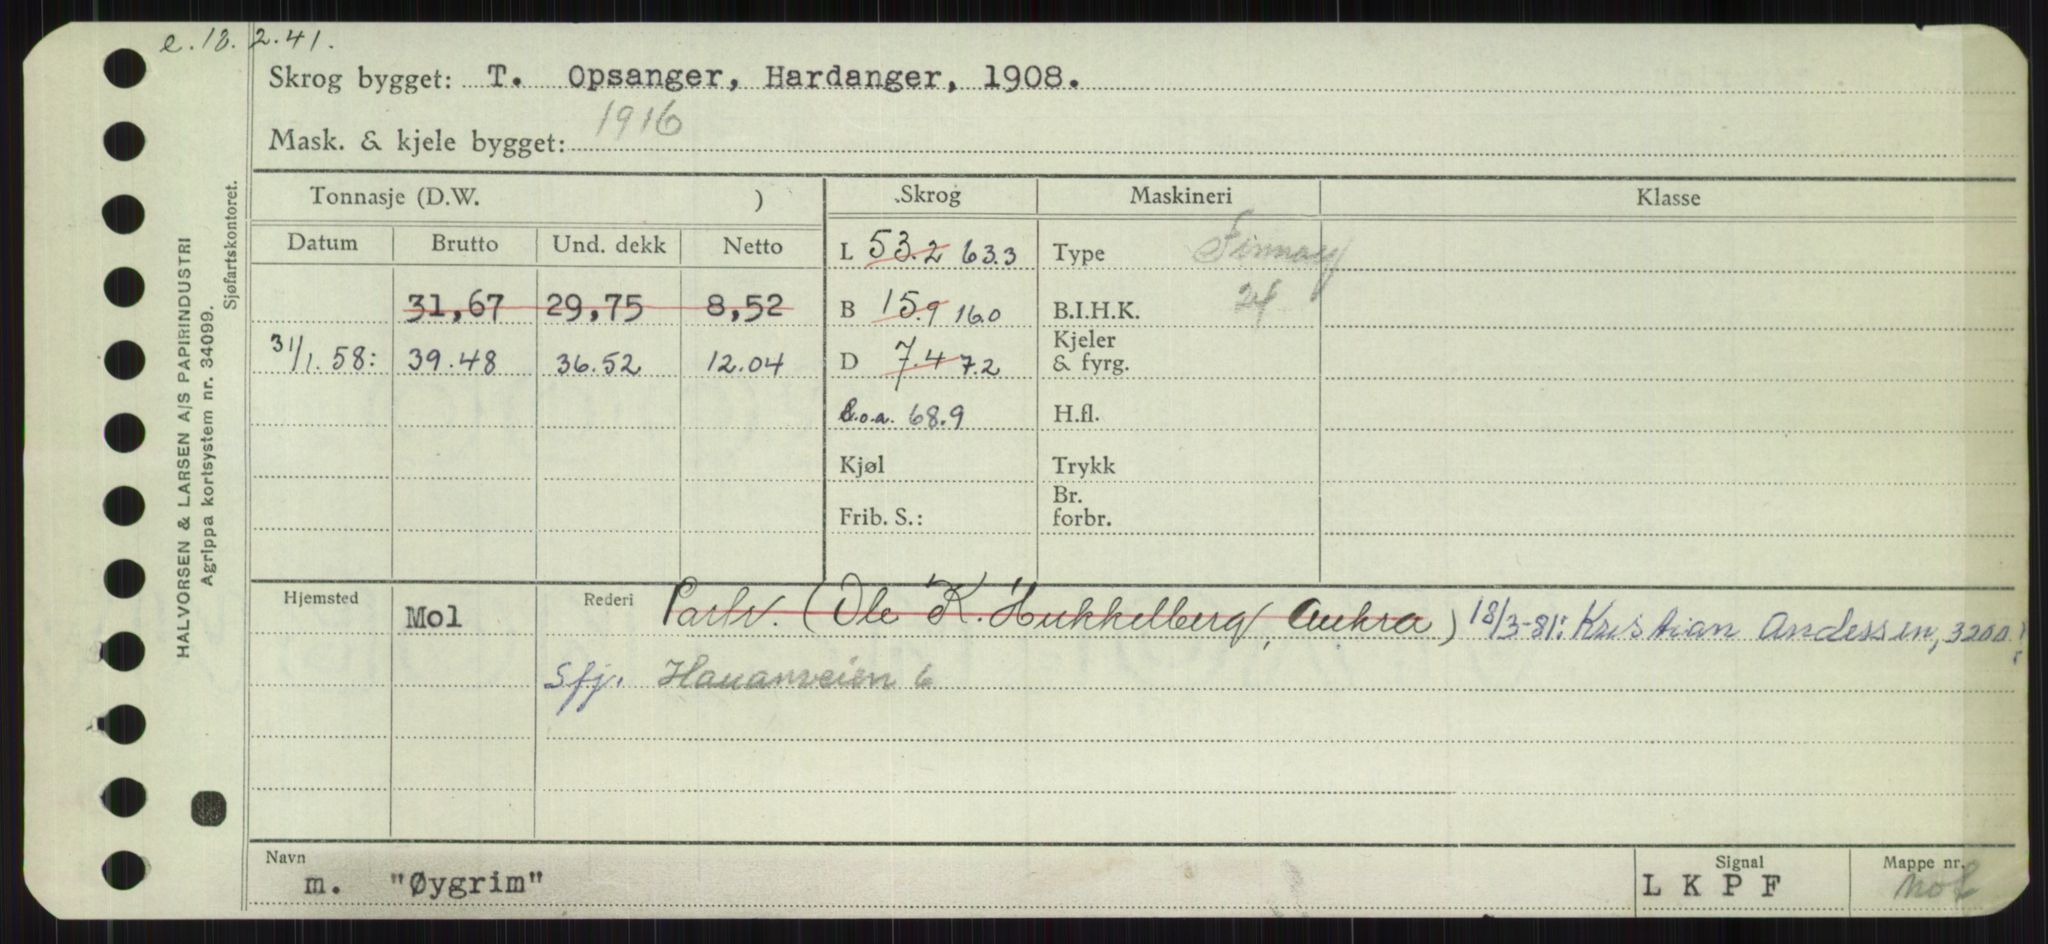 e. 18. 2. 41.
Skrog bygget: T. Opsanger, Hardanger, 1908.
Mask. & kjele bygget: 1916
HALVORSEN & LARSEN A/S PAPIRINDUSTRI
Agrippa kortsystem nr. 34099.
Sjøfartskontoret.
Tonnasje (D.W. ) Skrog Maskineri Klasse
Datum Brutto Und. dekk Netto
L 53.2 63.3 Type Finnøy
31,67 29,75 8,52 B 15.9 16.0 B.I.H.K. 24
31/1.58: 39.48 36.52 12.04 D 7.4 7.2 Kjeler & fyrg.
l.o.a. 68.9 H.fl.
Kjøl Trykk
Frib. S.: Br. forbr.
Hjemsted Mol Rederi Partr. (Ole K. Hukkelberg, Aukra) 18/3-81: Kristian Andessen, 3200
Sfj. Hauanveien 6
Navn Signal Mappe nr.
m. "Øygrim" L K P F Mol